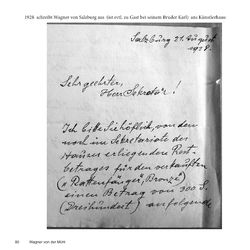 1928 schreibt Wagner von Salzburg aus (ist evtl. zu Gast bei seinem Bruder Karl) ans Künstlerhaus
Salzburg 21. August
1928.
Sehrgeehrter,
Herr Sekretär!
Ich bitte Sie höflich, von dem
noch im Sekretariate des
Hauses erliegenden Rest-
betrages für den verkauften
("Rattenfänger", Bronze)
einen Betrag von 300 S.
(Dreihundert) anfolgende
80 Wagner von der Mühl